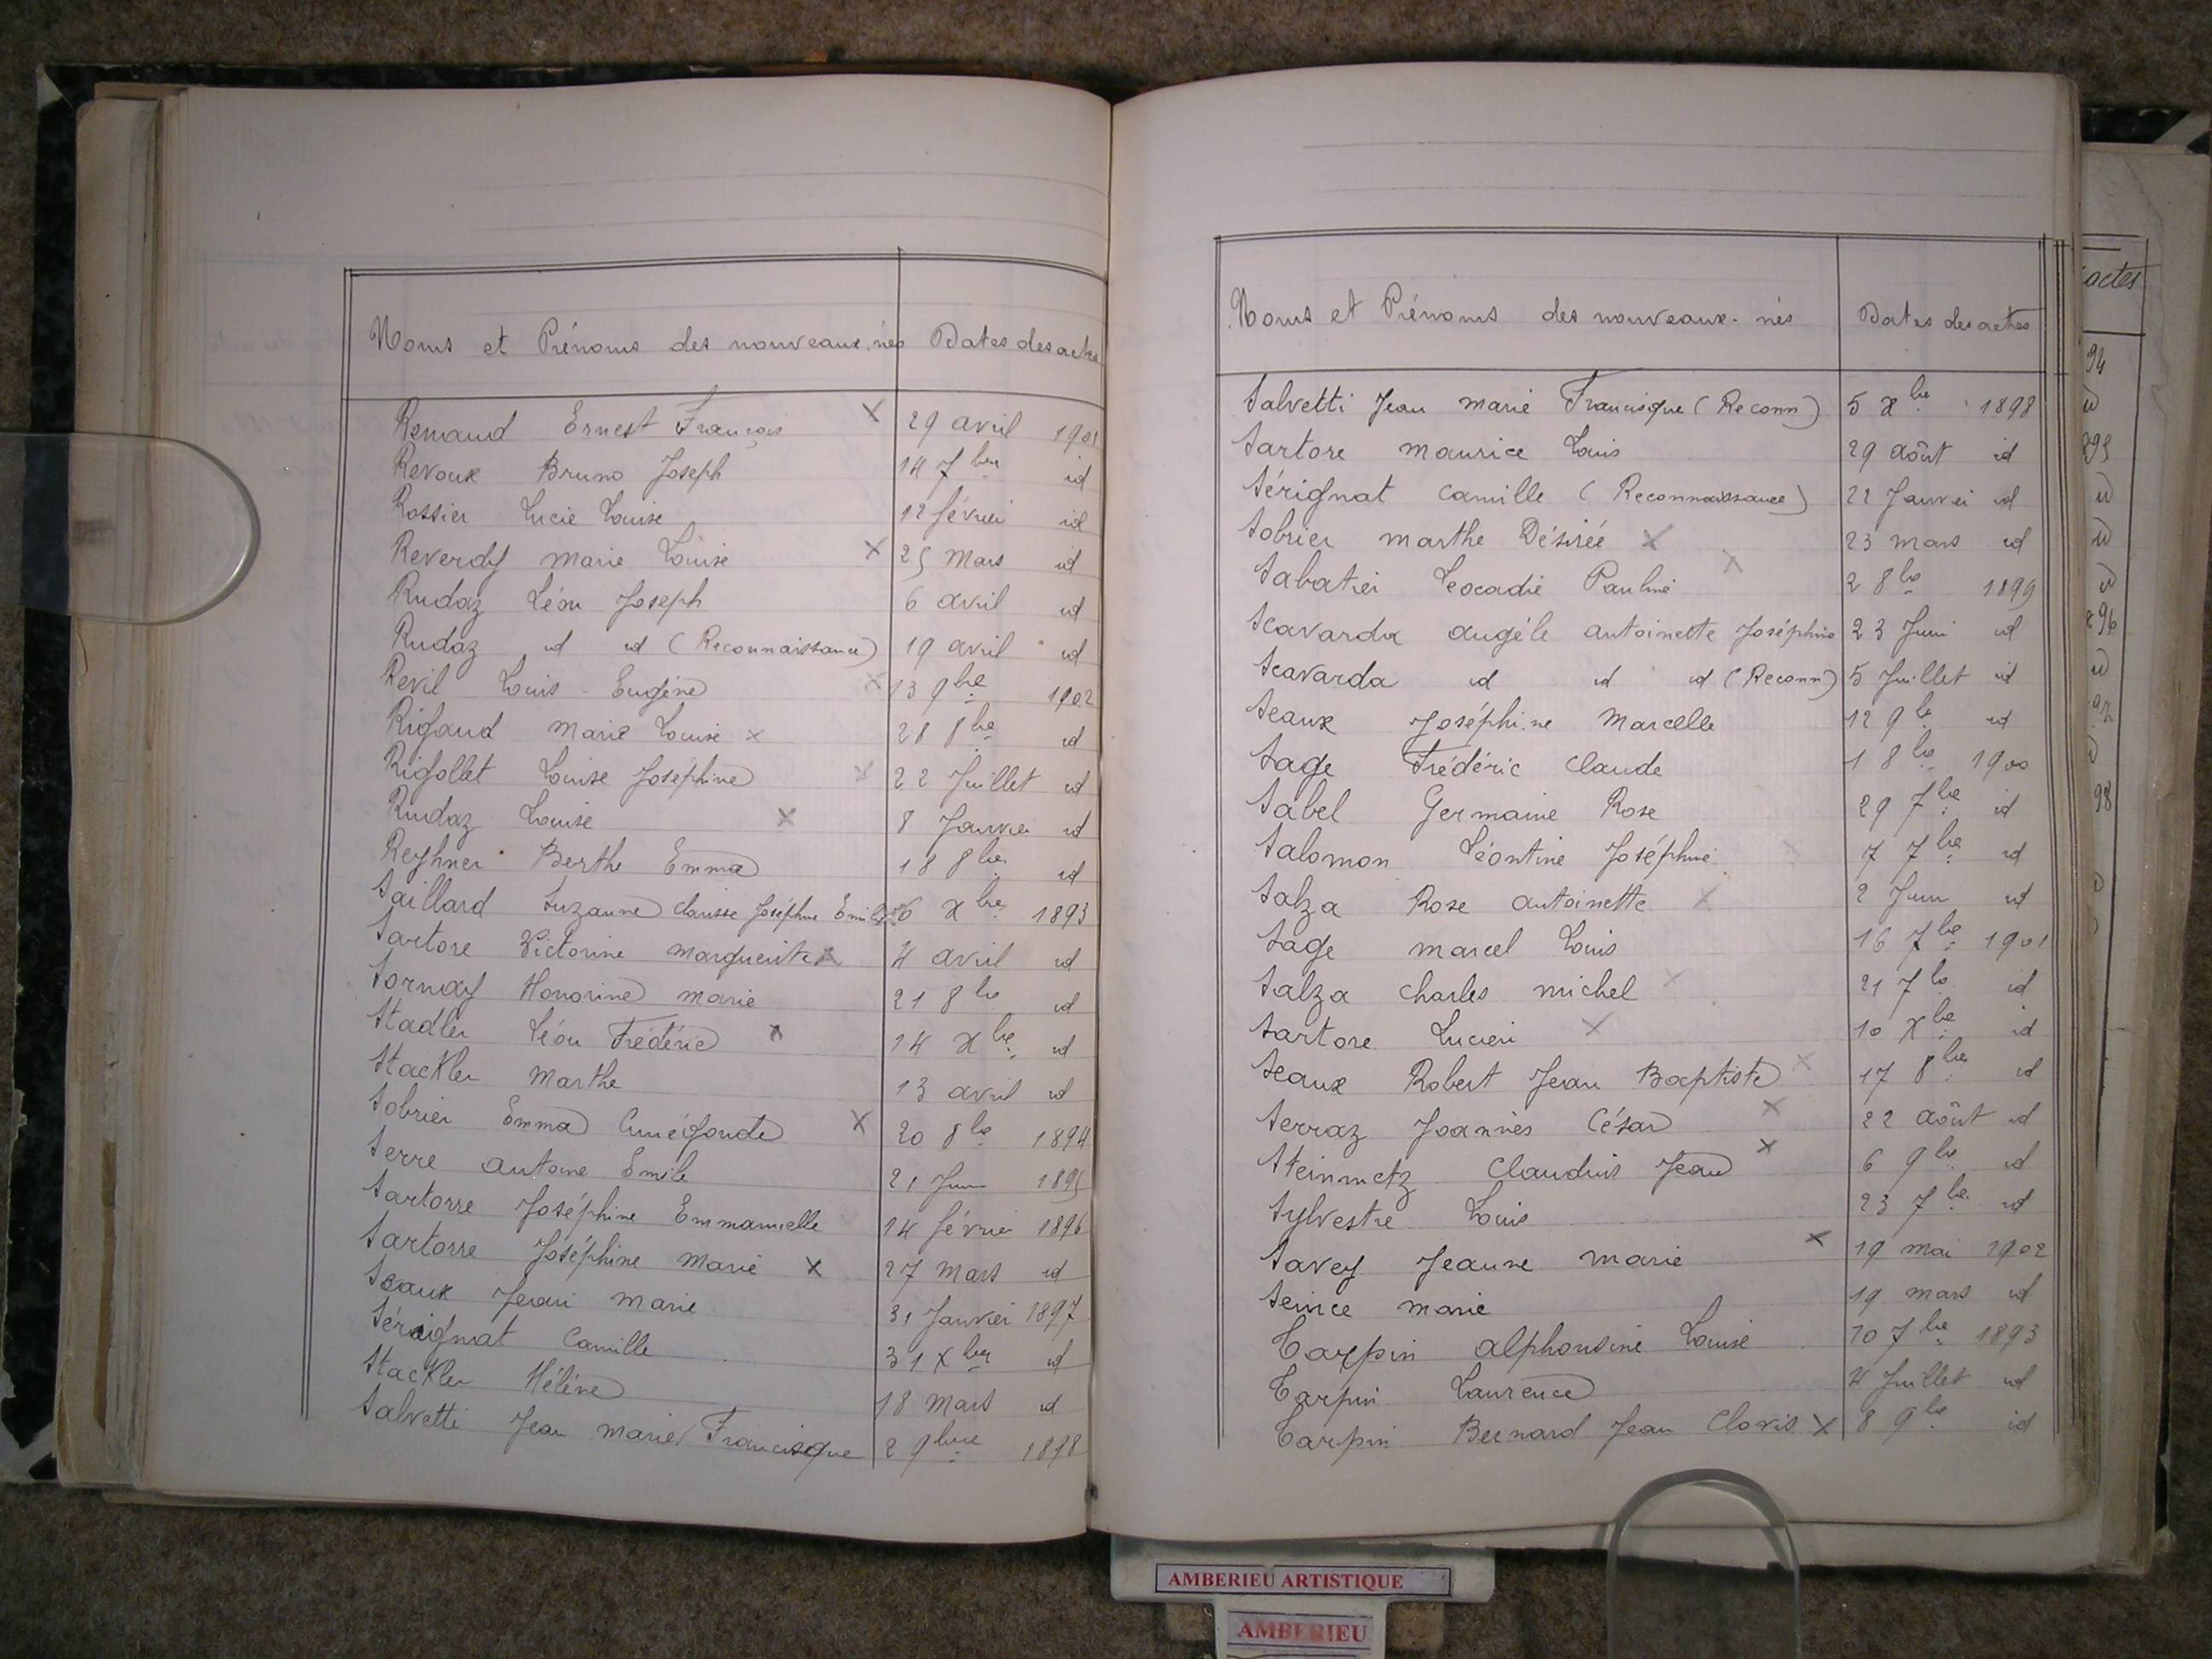 Noms et Prénoms des nouveaux-nés Dates des actes
Renaud Ernest François X 29 avril 1901
Revoux Bruno Joseph 14 7bre id
Rossier Lucie Louise 12 février id
Reverdy marie Louise X 25 Mars id
Rudaz Léon Joseph 6 avril id
Rudaz id id (Reconnaissance) 19 avril id
Revil Louis Eugène X 13 9bre 1902
Rigaud Marie Louise X 28 8bre id
Rigollet Louise Joséphine X 22 Juillet id
Rudaz Louise X 8 Janvier id
Reyhner Berthe Emma 18 8bre id
Saillard Suzanne Clarisse Joséphine 6 Xbre 1893
Sartore Victorine marguerite X 4 avril id
Sornay Honorine marie 21 8bre id
Stadler Léon Frédéric X 14 Xbre id
Stackler Marthe 13 avril id
Sobrier Emma Cunégonde X 20 8bre 1894
Serre antoine Emile 21 Juin 1895
Sartorre Joséphine Emmanuelle 14 février 1896
Sartorre Joséphine Marie X 27 Mars id
Seaux Jean marie 31 Janvier 1897
Sérignat Camille 31 Xbre id
Stackler Hélène 18 Mars id
Salvetti Jean marie Francisque 2 9bre 1898
Noms et Prénoms des nouveaux-nés Dates des actes
Salvetti Jean marie Francisque (Reconn) 5 Xbre 1898
Sartore maurice Louis 29 août id
Sérignat Camille (Reconnaissance) 22 Janvier id
Sobrier marthe Désirée X 23 mars id
Sabatier Leocadie Pauline X 2 8bre 1899
Scavarda angèle antoinette Joséphine 23 Juin id
Scavarda id id id (Reconn) 5 Juillet id
Seaux Joséphine Marcelle 12 9bre id
Sage Frédéric Claude 1 8bre 1900
Sabel Germaine Rose 29 7bre id
Salomon Léontine Joséphine 7 7bre id
Salza Rose antoinette X 2 Juin id
Sage marcel Louis 16 7bre 1901
Salza Charles michel X 21 7bre id
Sartore Lucien X 10 Xbre id
Seaux Robert Jean Baptiste X 17 8bre id
Serraz Joannès César X 22 août id
Steinmetz Claudius Jean X 6 9bre id
Sylvestre Louis 23 7bre id
Savey Jeanne marie X 19 mai 1902
marie 19 mars id
Tarpin alphonsine Louise 10 7bre 1893
Tarpin Laurence 4 Juillet id
Tarpin Bernard Jean Clovis X 8 9bre id
actes
94
id
id
id
id
96
id
98
AMBERIEU ARTISTIQUE
AMBERIEU